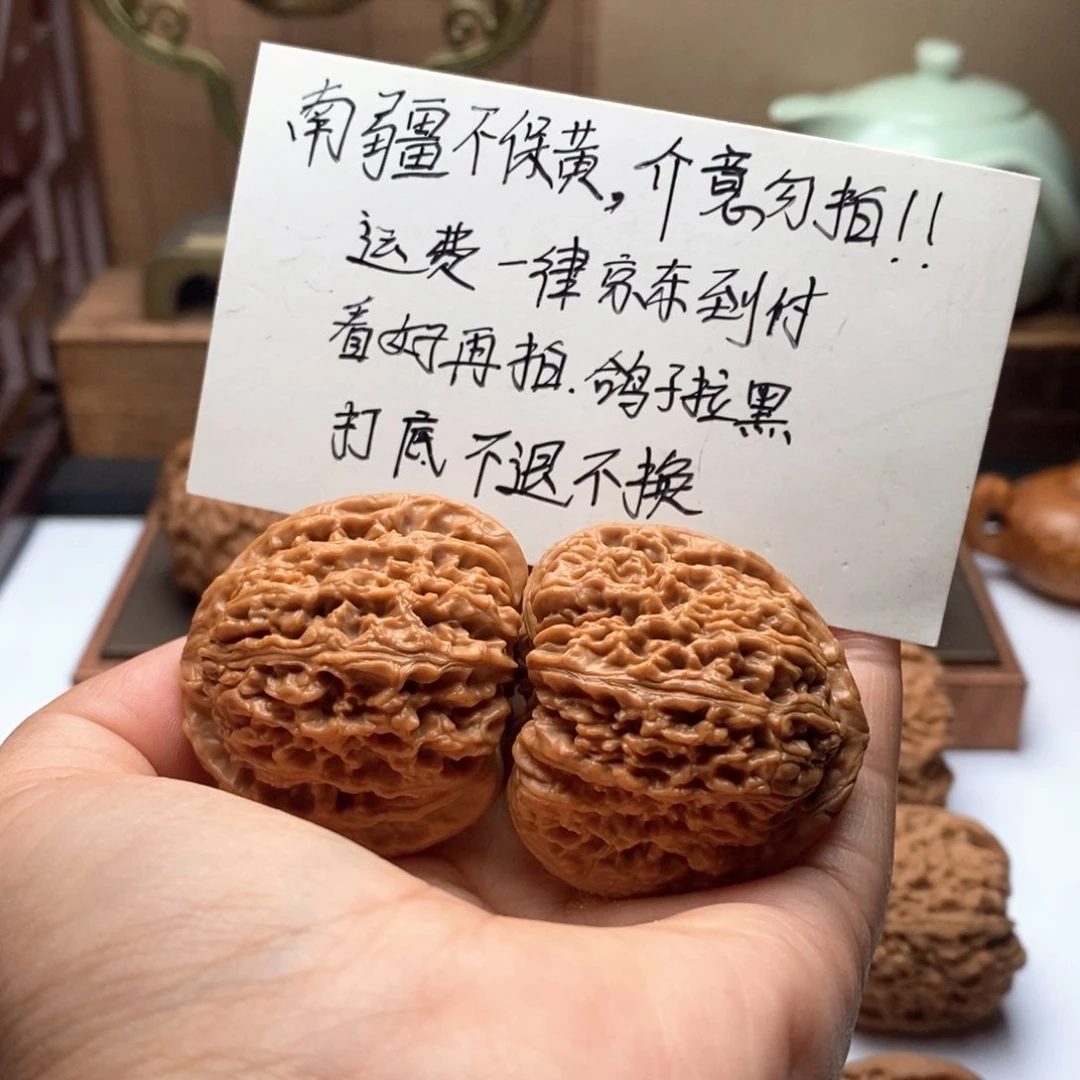 南疆不保黄,介意勿拍!!
运费一律京东到付
看好再拍.鸽子拉黑
打底不退不换